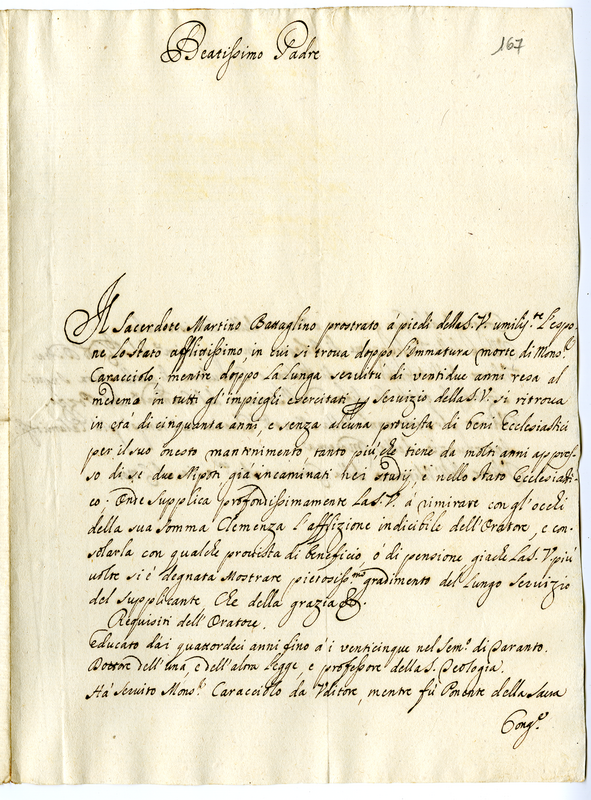 Beatissimo Padre
167
Il Sacerdote Martino Battaglino prostrato à piedi della S. V. umiliss.te l'espo-
ne lo stato afflittissimo, in cui si trova doppo l'Immatura morte di Mons.r
Caracciolo; mentre doppo la lunga servitù di ventidue anni resa al
medemo in tutti gl'impieghi esercitati p servizio della S. V. si ritrova
in età di cinquanta anni, e senza alcuna provista di beni Ecclesiastici
per il suo onesto mantenimento tanto più, che tiene da molti anni appres-
so di se due Nipoti già incaminati nei studij, e nello stato Ecclesiasti-
co: Onde supplica profondissimamente la S. V. à rimirare con gl'occhi
della sua somma Clemenza l'afflizione indicibile dell'Oratore, e con-
solarla con qualche provista di beneficio ò di pensione, giache la S. V. più
volte si è degnata mostrare pietosiss.mo gradimento del lungo servizio
del supplicante. Che della grazia &.
Requisiti dell'Oratore.
Educato dai quattordeci anni fino à i venticinque nel Sem.o di Taranto.
Dottore dell'una, e dell'altra legge, e professore della S. Teologia.
Hà servito Mons.r Caracciolo da Uditore, mentre fù Ponente della Sacra
Cong.e